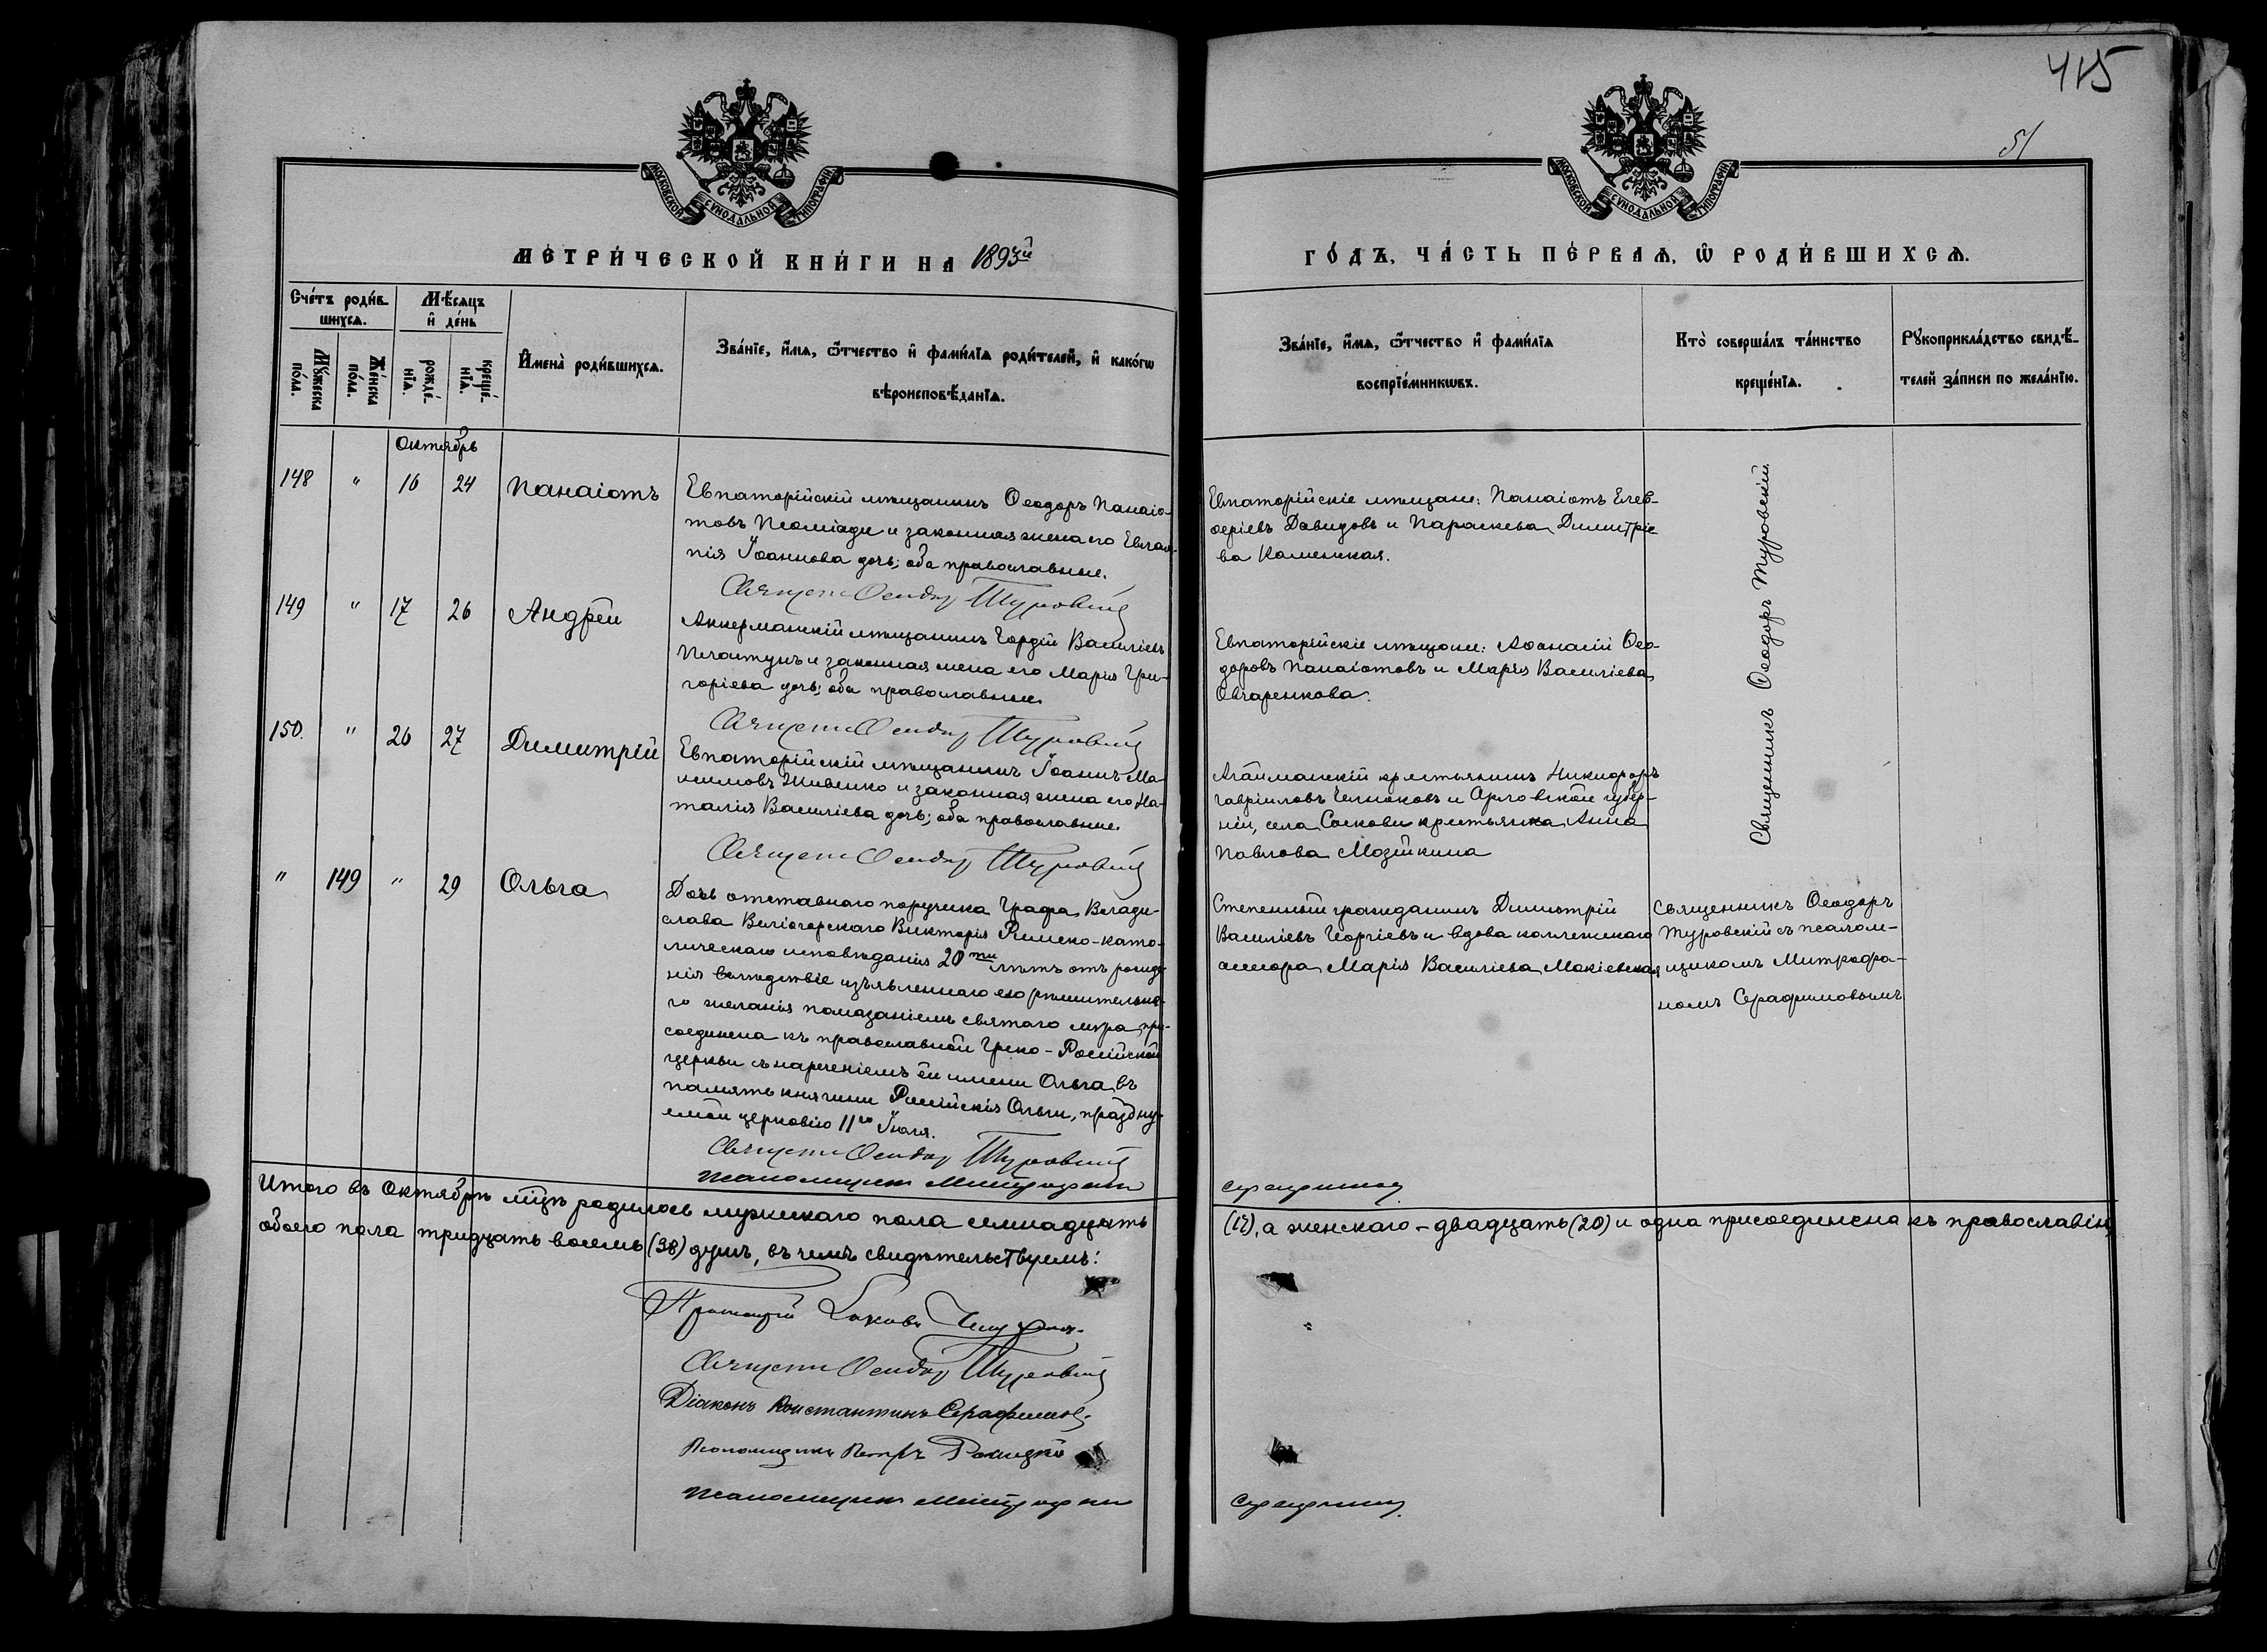 415
51
МОСКОВСКОЙ СѴНОДАЛЬНОЙ ТИПОГРАФІИ
МОСКОВСКОЙ СѴНОДАЛЬНОЙ ТИПОГРАФІИ
МЕТРИ́ЧЕСКОЙ КНИ́ГИ НА 1893й
ГО́ДЪ, ЧА́СТЬ ПЕ́РВАѦ, Ѿ РОДИ́ВШИХСѦ.
Сче́тъ роди́в-
шихсѧ.
Мꙋ́жеска по́ла.
Же́нска по́ла.
Мѣ́сѧцъ
и҆ де́нь
рожде́-нїѧ.
креще́-нїѧ.
И҆мена̀ роди́вшихсѧ.
Зва́нїе, и҆́мѧ, ѻ҆́тчество и҆ фами́лїѧ роди́телей, и҆ како́гѡ
вѣроисповѣ́данїѧ.
Зва́нїе, и҆́мѧ, ѻ҆́тчество и҆ фами́лїѧ
воспрїе́мникѡвъ.
Кто̀ соверша́лъ та́инство
креще́нїѧ.
Рꙋкоприкла́дство свидѣ́-
телей за́писи по жела́нїю.
Октябрь
148 " 16 24 Панаіотъ
Евпаторійскій мѣщанинъ Ѳеодоръ Панаіо-
товъ Псоміади и законная жена его Евлам-
пія Іоаннова дочь; оба православные.
Священ Ѳеодор Туровскій
Евпаторійскіе мѣщане: Панаіотъ Елев-
ѳеріевъ Давидовъ и Параскева Димитріе-
ва Каменская.
Священникъ Ѳеодоръ Туровскій
149 " 17 26 Андрей
Аккерманскій мѣщанинъ Гордій Васильевъ
Пластунъ и законная жена его Марія Гри-
горіева дочь; оба православные.
Священ Ѳеодор Туровскій
Евпаторійскіе мѣщане: Аѳанасій Ѳео-
доровъ Панаіотовъ и Марія Василіева
Овчаренкова.
150. " 26 27 Димитрій
Евпаторійскій мѣщанинъ Іоаннъ Ма-
ксимовъ Живенко и законная жена его На-
талія Василіева дочь; оба православные.
Священ Ѳеодор Туровскій
Агайманскій крестьянинъ Никифоръ
Гавріиловъ и Орловской губер-
ніи, села крестьянка Анна
Павлова Мозейкина
" 149 " 29 Ольга
Дочь отставнаго поручика Графа Влади-
слава Веліогорскаго Викторія Римско-като-
лическаго исповѣданія 20ти лѣтъ отъ рожде-
нія вслѣдствіе изъявленнаго ею рѣшительна-
го желанія помазаніемъ святаго мѵра при-
соединена къ православной Греко-Россійской
церкви съ нареченіемъ ей имени Ольга, въ
память княгини Россійскія Ольги, праздну-
емой церковію 11го Іюля.
Священ Ѳеодор Туровскій
Псаломщикъ Митрофанъ
Серафимовъ
Степенный гражданинъ Димитрій
Василіевъ Георгіевъ и вдова коллежскаго
ассесора Марія Василіева Макіевская
Священникъ Ѳеодоръ
Туровскій съ псалом-
щикомъ Митрофа-
номъ Серафимовымъ
Итого въ Октябрѣ мцѣ родилось мужескаго пола семнадцать
(17), а женскаго – двадцать (20) и одна присоединена къ православію,
обоего пола тридцать восемь (38) душъ, въ чемъ свидѣтельствуемъ:
Протоіерей Іаковъ
Священ Ѳеодор Туровскій
Діаконъ Константинъ Серафимовъ.
Псаломщикъ Петръ
Псаломщикъ Митрофанъ
Серафимовъ.